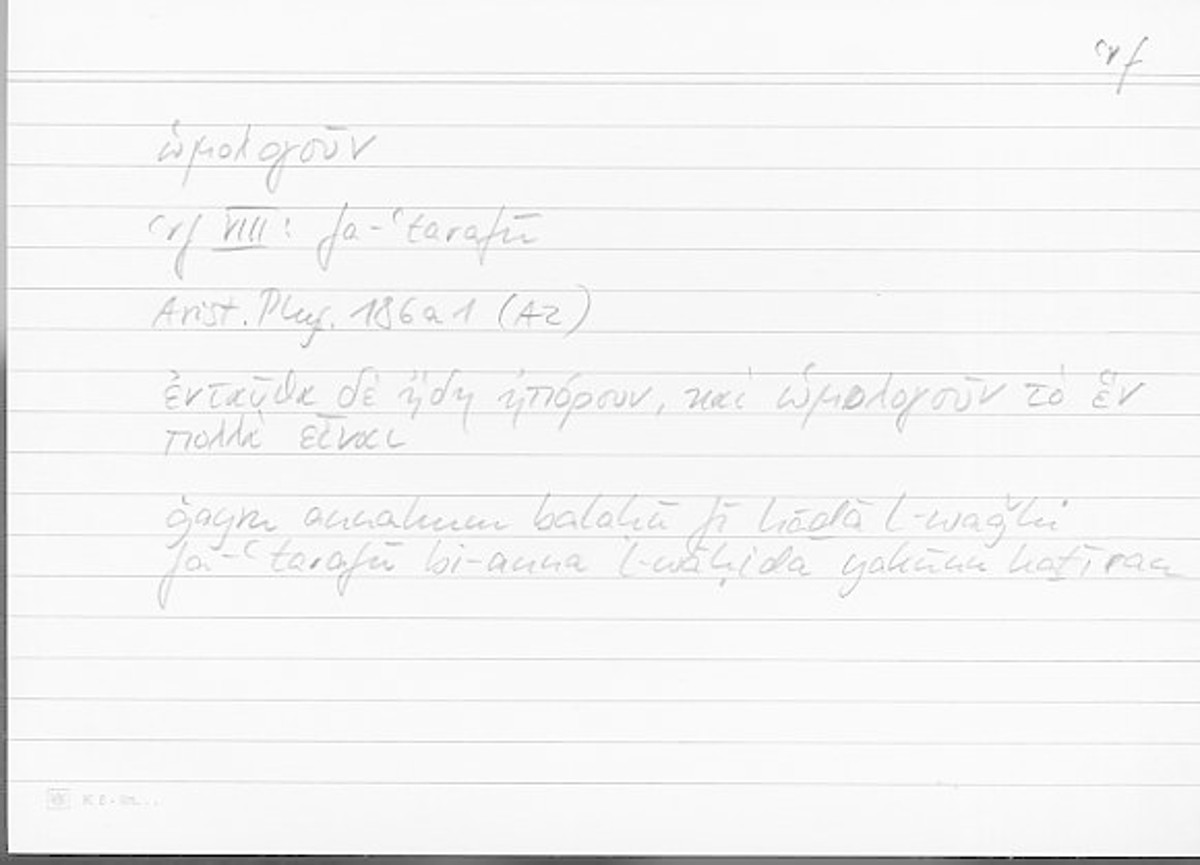 ʿrf
ὡμολογοῦν
ʿrf VIII: fa-ʿtarafū
Arist. Phys. 186a1 (A2)
ἐνταῦθα δὲ ἤδη ἠπόρουν, καὶ ὡμολογοῦν τὸ ἓν
πολλὰ εἶναι
ġayru annahum balaḥū fī hāḏā l-waǧhi
fa-ʿtarafū bi-anna l-wāḥida yakūnu kaṯīran